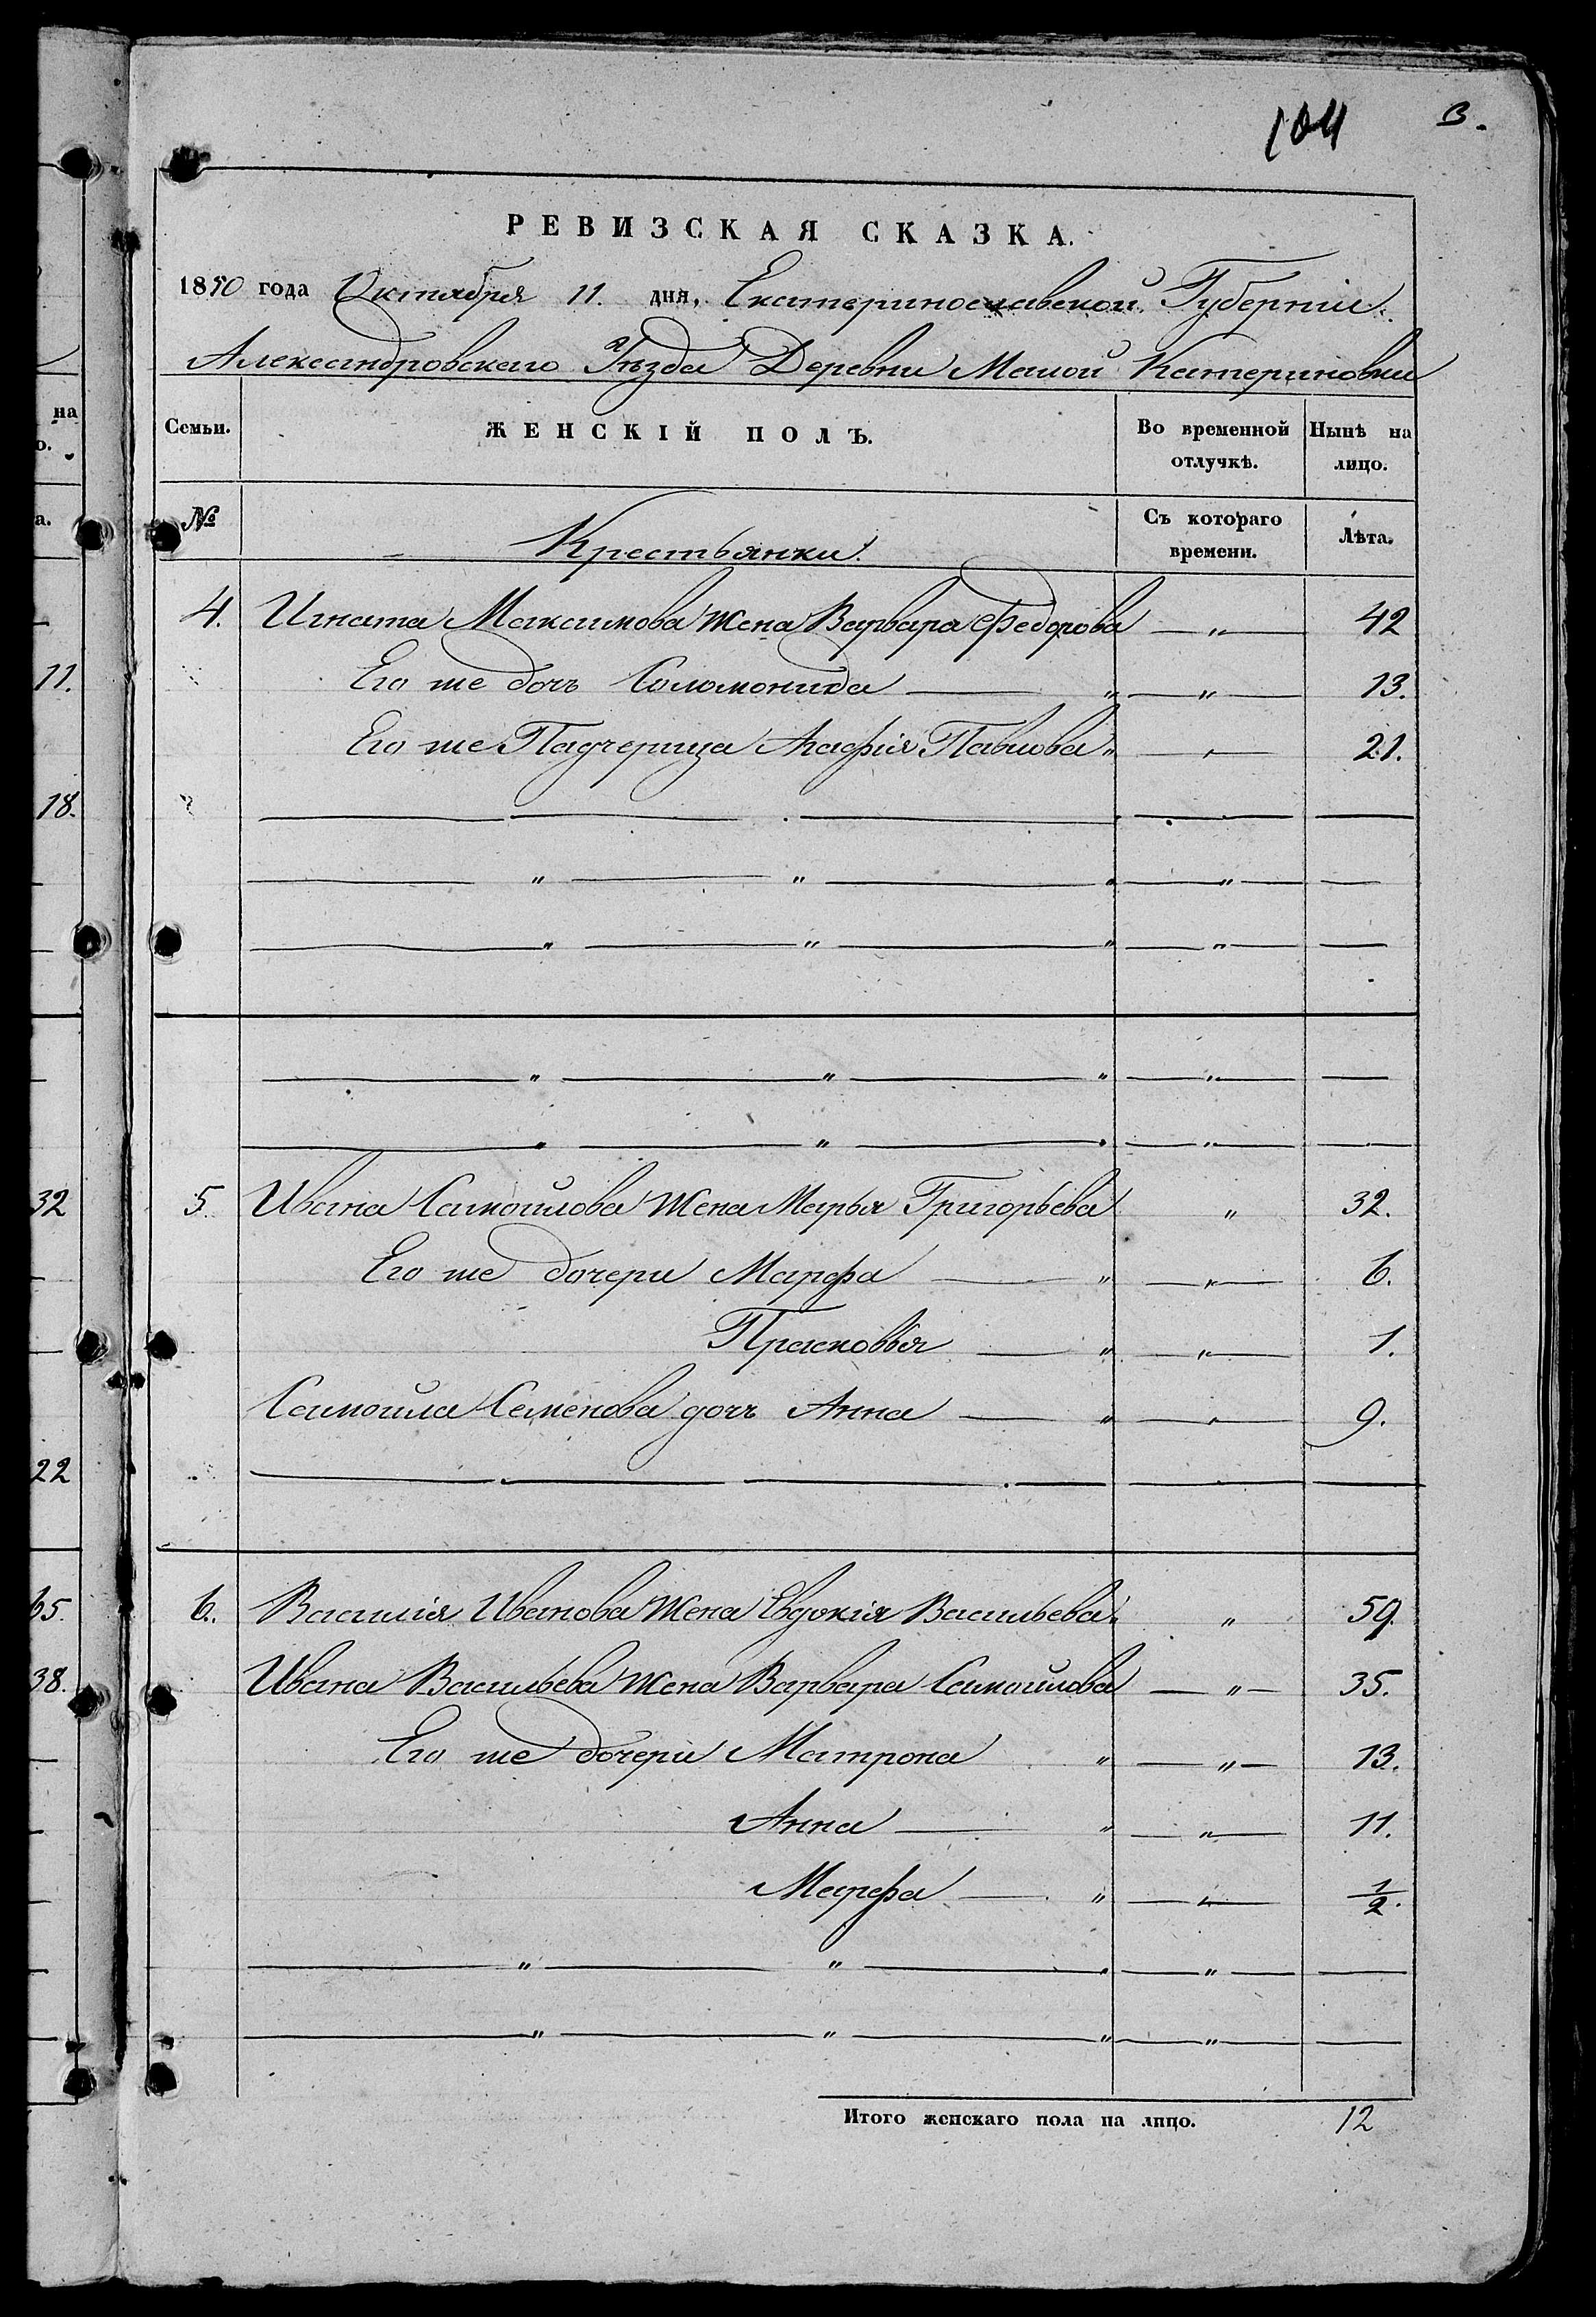 104 3.
РЕВИЗСКАЯ СКАЗКА.
1850 года Октября 11. дня, Екатеринославской Губерніи
Александровскаго Уѣзда Деревни Малой Катериновки
на
Семьи. ЖЕНСКІЙ ПОЛЪ. Во временной отлучкѣ. Нынѣ на лицо.
№ Крестьянки. Съ котораго времени. Лѣта.
4. Игната Максимова жена Варвара Федорова — „ — 42
11. Его же дочь Соломонида — „ — „ — 13.
Его же Падчерица Агафія Павлова „ — „ — 21.
18.
32 5. Ивана Самойлова жена Марья Григорьева „ 32.
Его же дочери Марфа — „ — „ — 6.
Прасковья — „ — „ — 1.
Самойла Семенова дочь Анна — „ — „ — 9.
22
65. 6. Василія Иванова жена Евдокія Васильева „ 59.
38. Ивана Васильева жена Варвара Самойлова — „ — 35.
Его же дочери Матрона „ — „ — 13.
Анна — „ — „ — 11.
Марфа — „ — „ — 1/2.
Итого женскаго пола на лицо. 12